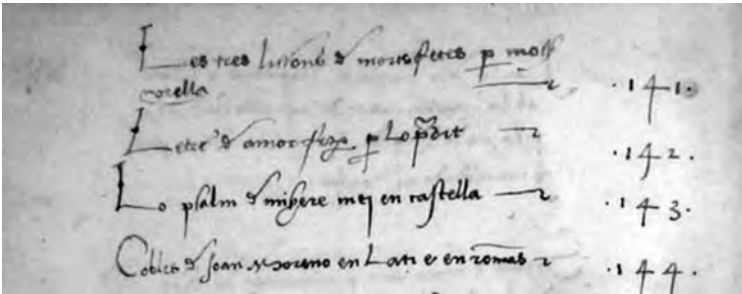 Les tres lisons d morts fetes p moss
corella ·141·
Letre d amor feta p lo p dit ·142·
Lo psalm d misere mej en castella ·143·
Cobles d Joan Moreno en Lati e en romas ·144·